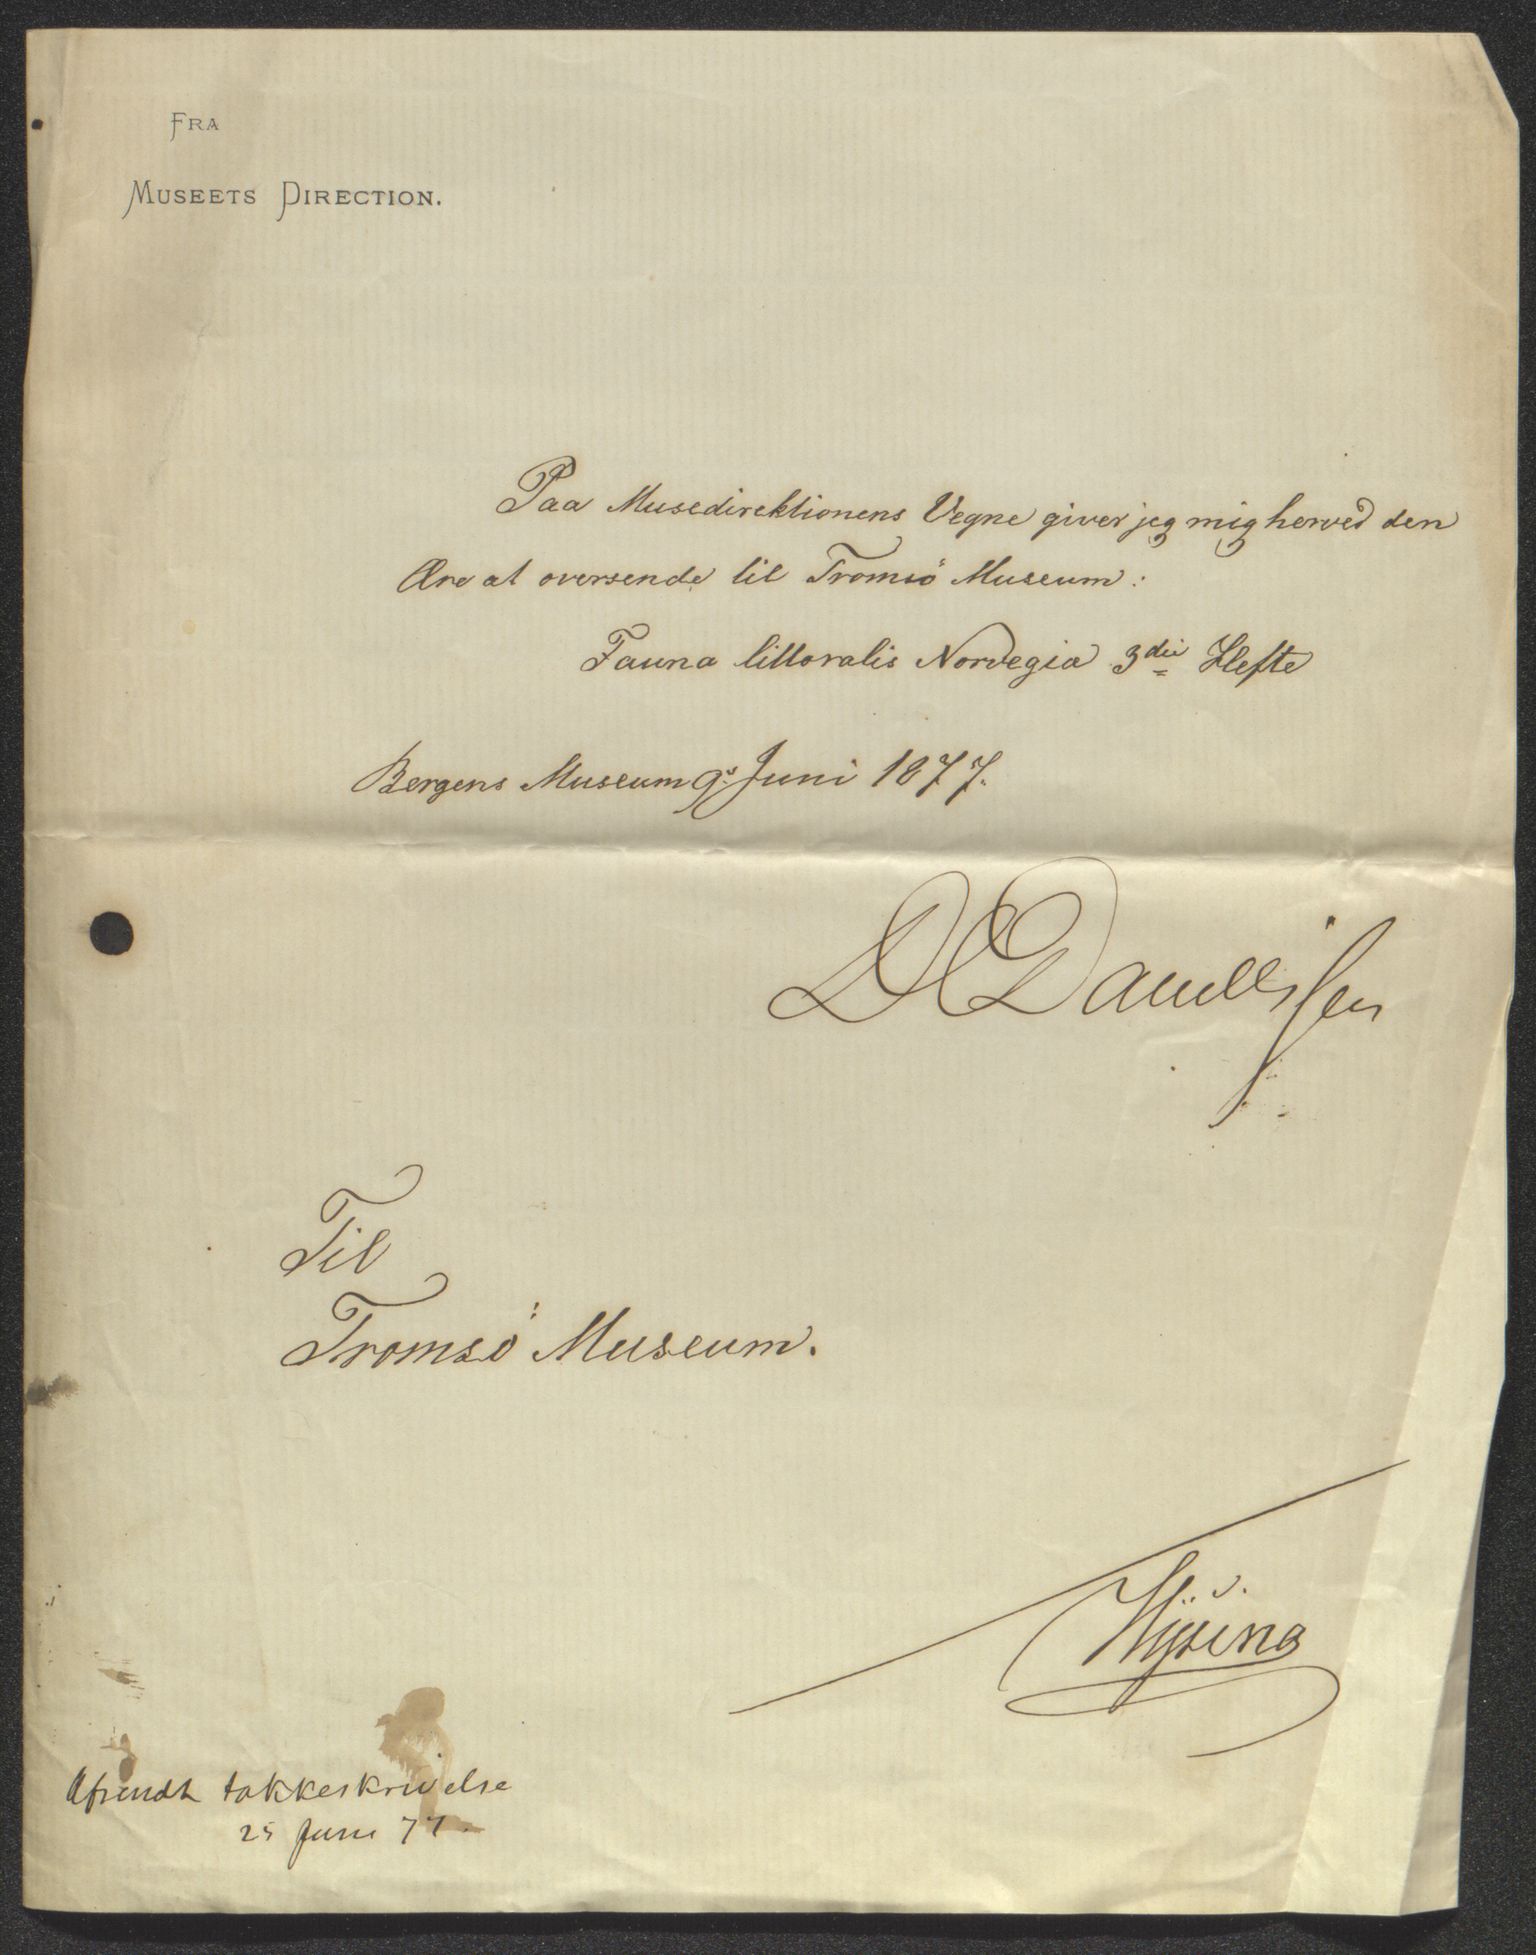 FRA
MUSEETS DIRECTION.
Paa Musedirektionens Vegne giver jeg mig herved den
Ære at oversende til Tromsö Museum:
Fauna littoralis Norvegia 3die Hefte
Bergens Museum 9s Juni 1877.
D C Danielssen
Til
Tromsö Museum.
Afsendt takkeskrivelse
25 Juni 77.